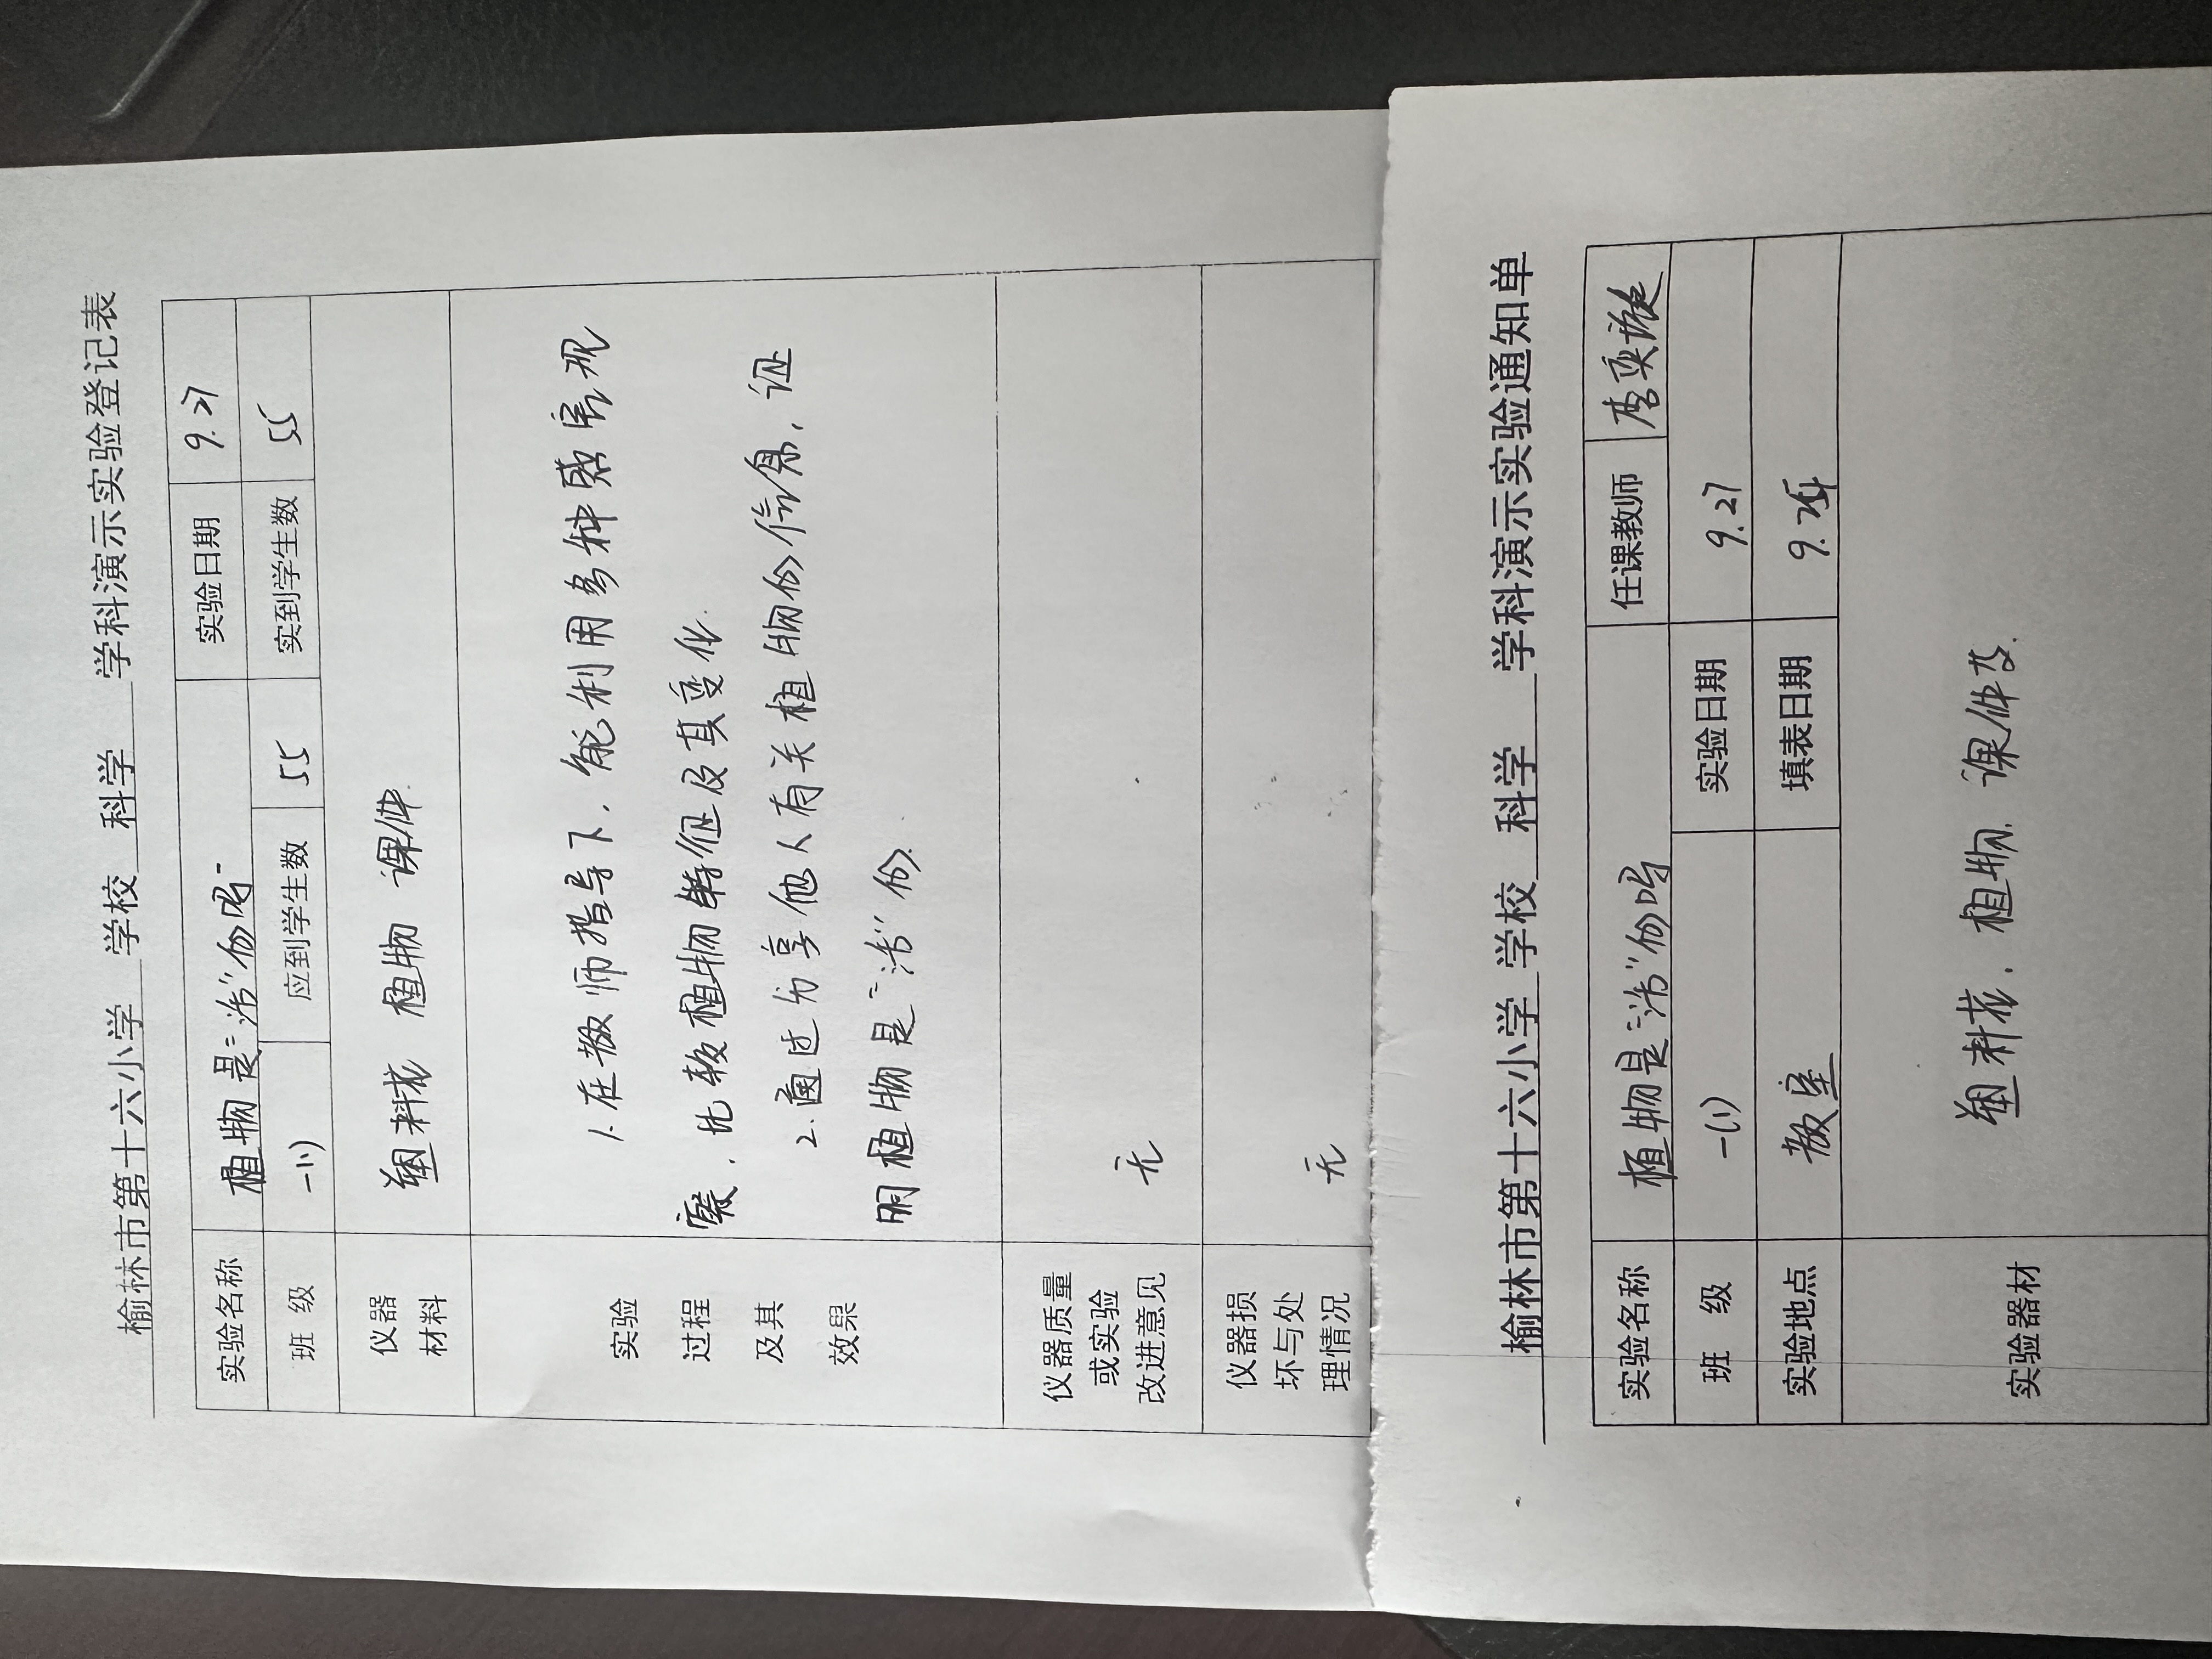 榆林市第十六小学 学校 科学 学科演示实验登记表
实验名称 植物是“活”的吗 实验日期 9.27
班 级 一(1) 应到学生数 55 实到学生数 55
仪器 材料 塑料花 植物 课件
实验 过程 及其 效果
1.在教师指导下,能利用多种感官观
察,比较植物特征及其变化.
2.通过分享他人有关植物的信息,证
明植物是“活”的.
仪器质量 或实验 改进意见 无
仪器损 坏与处 理情况 无
榆林市第十六小学 学校 科学 学科演示实验通知单
实验名称 植物是“活”的吗 任课教师 李奕
班 级 一(1) 实验日期 9.27
实验地点 教室 填表日期 9.
实验器材 塑料花,植物,课件